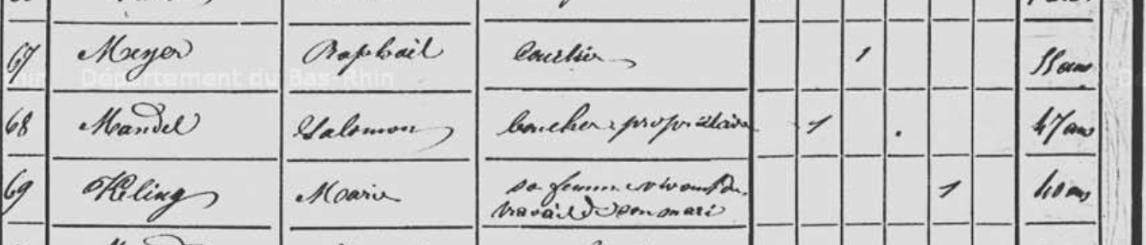 67 Meyer Raphaël Courtier 1 55 ans
Département du Bas-Rhin
68 Mandel Salomon boucher propriétaire 1 47 ans
69 Kling Marie sa femme vivant du 1 40 ans
travail de son mari